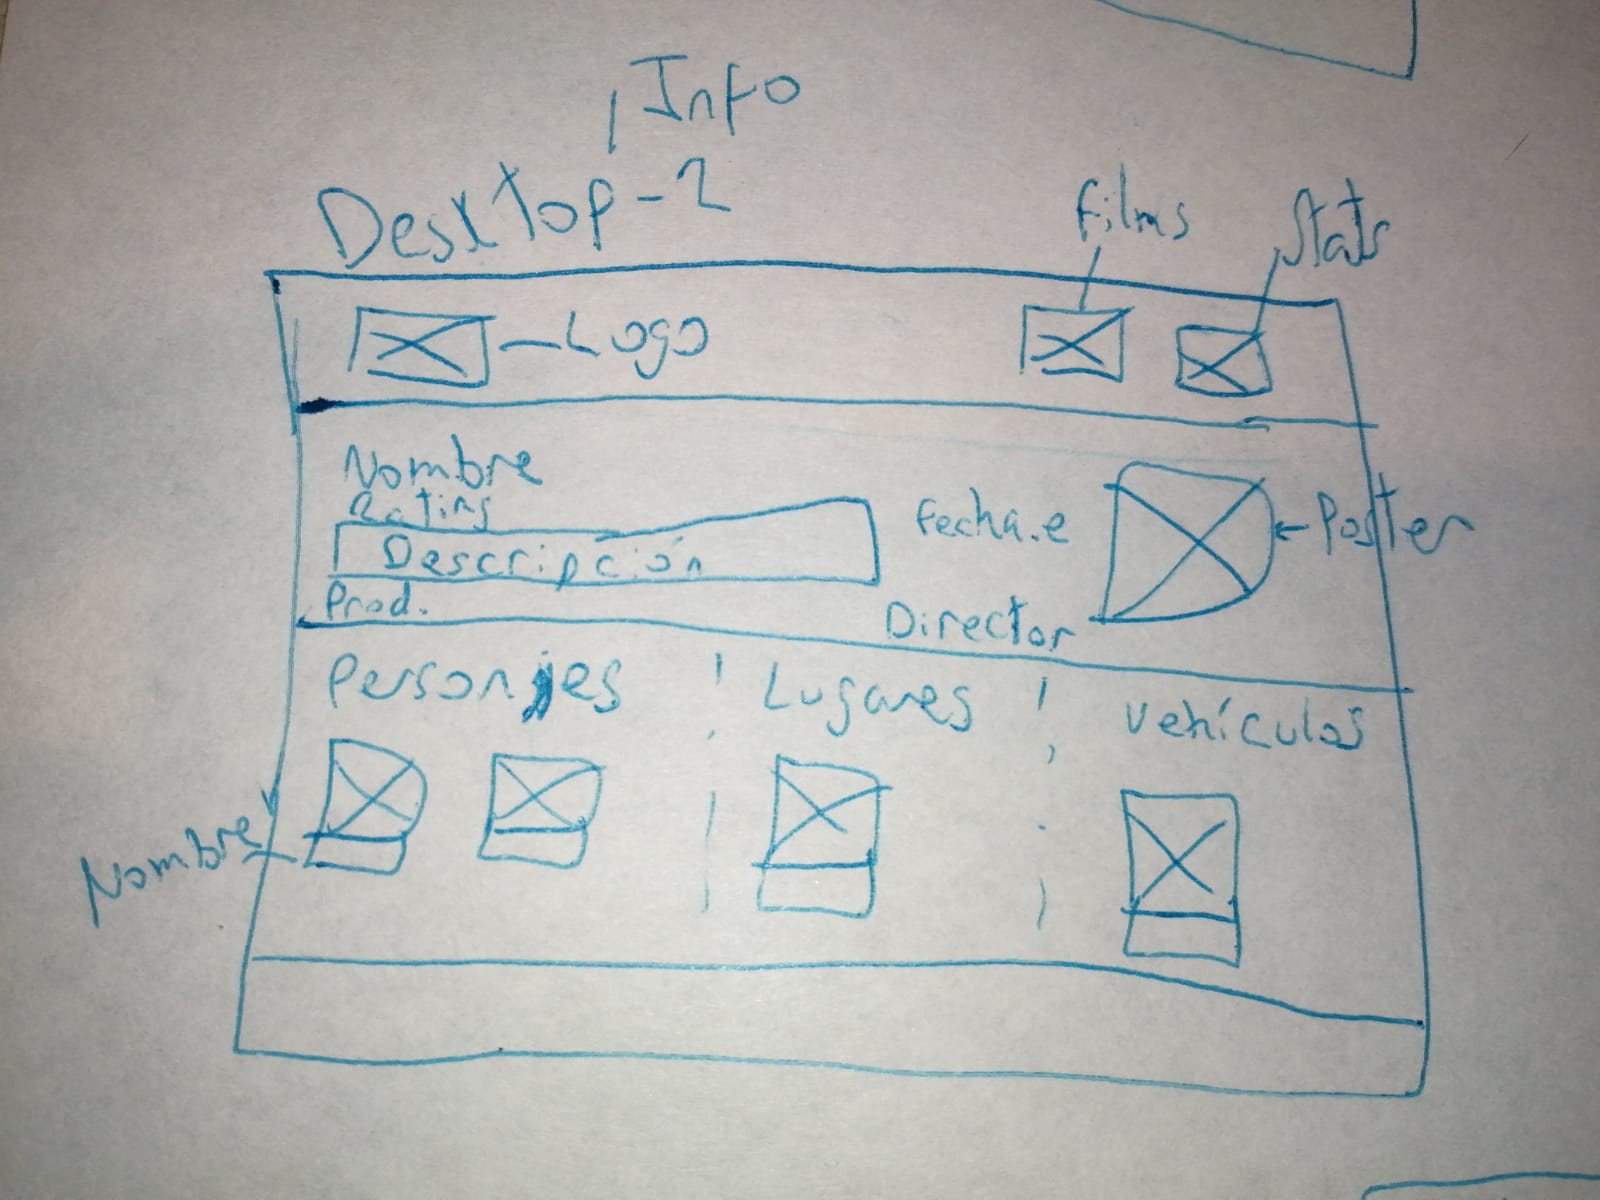 Info
Desktop-2
Films
Stats
Logo
Nombre
Rating
Descripción
Prod.
Fecha.e
Director
Poster
Personjes
Lugares
Vehículos
Nombre